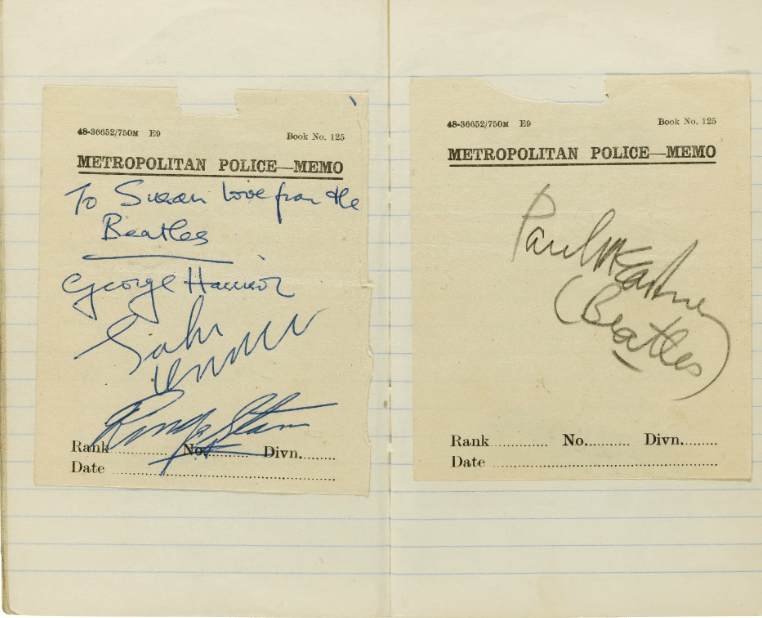 48-36652/750M E9 Book No. 125
METROPOLITAN POLICE—MEMO
To Susan love from the
Beatles
George Harrison
John
Lennon
Ringo Starr
Rank .......... No.......... Divn........
Date ..........................................
48-36652/750M E9 Book No. 125
METROPOLITAN POLICE—MEMO
Paul McCartney
(Beatles)
Rank .......... No.......... Divn........
Date ..........................................